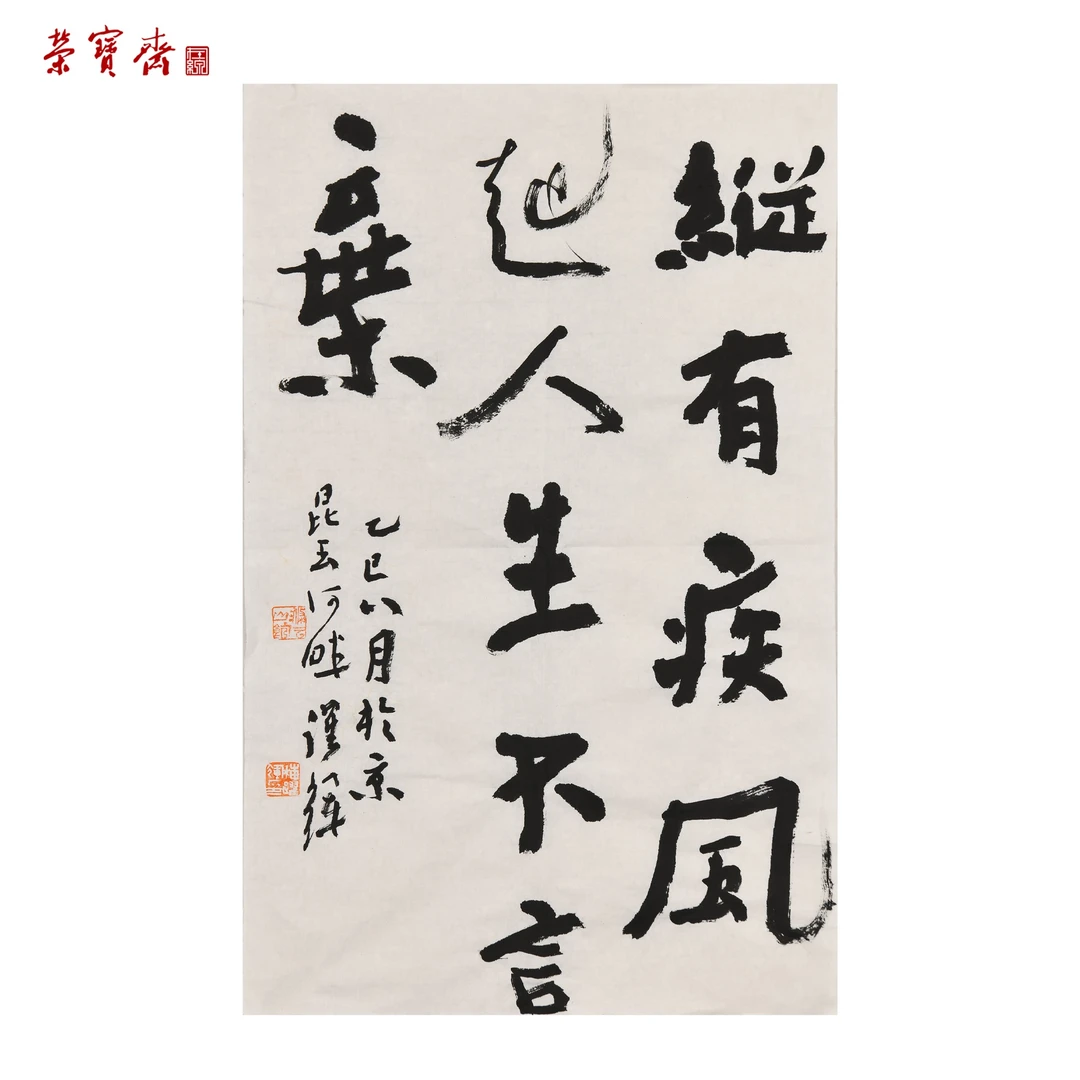 榮寶齋
縱有疾風
起人生不言
棄
乙巳八月於京
昆玉河畔